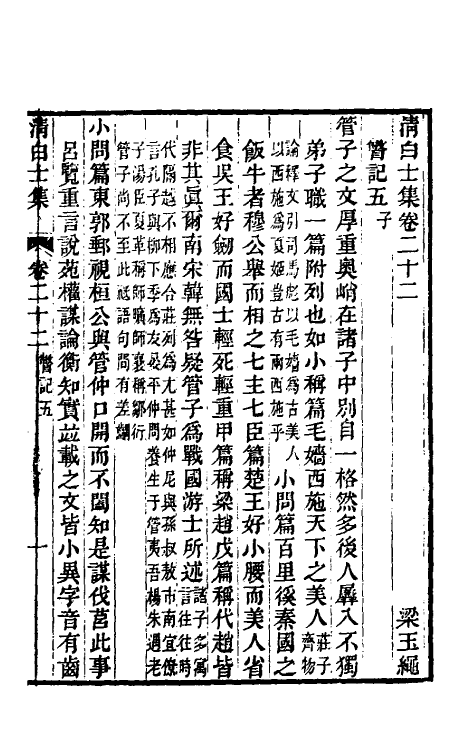 清白士集卷二十二
梁玉繩
瞥記五子
管子之文厚重奧峭在諸子中別自一格然多後人羼入不獨
弟子職一篇附列也如小稱篇毛嬙西施天下之美人莊子齊物
論釋文引司馬彪以毛嬙爲古美人以西施爲夏姬豈古有兩西施乎小問篇百里徯秦國之
飯牛者穆公舉而相之七主七臣篇楚王好小腰而美人省
食吳王好劒而國士輕死輕重甲篇稱梁趙戊篇稱代趙皆
非其眞爾南宋韓無咎疑管子爲戰國游士所述諸子多寓言往往時
代隔越不相應合莊列爲尤甚如仲尼與孫叔敖市南宜僚
言孔子與柳下季爲友晏平仲問養生于管夷吾楊朱遇老
子湯臣夏革稱師曠師襄稱鄒衍
管子尚不至此祇語句間有差爾
小問篇東郭郵視桓公與管仲口開而不闔知是謀伐莒此事
呂覽重言說苑權謀論衡知實竝載之文皆小異字音有齒
清白士集
卷二十二瞥記五
一